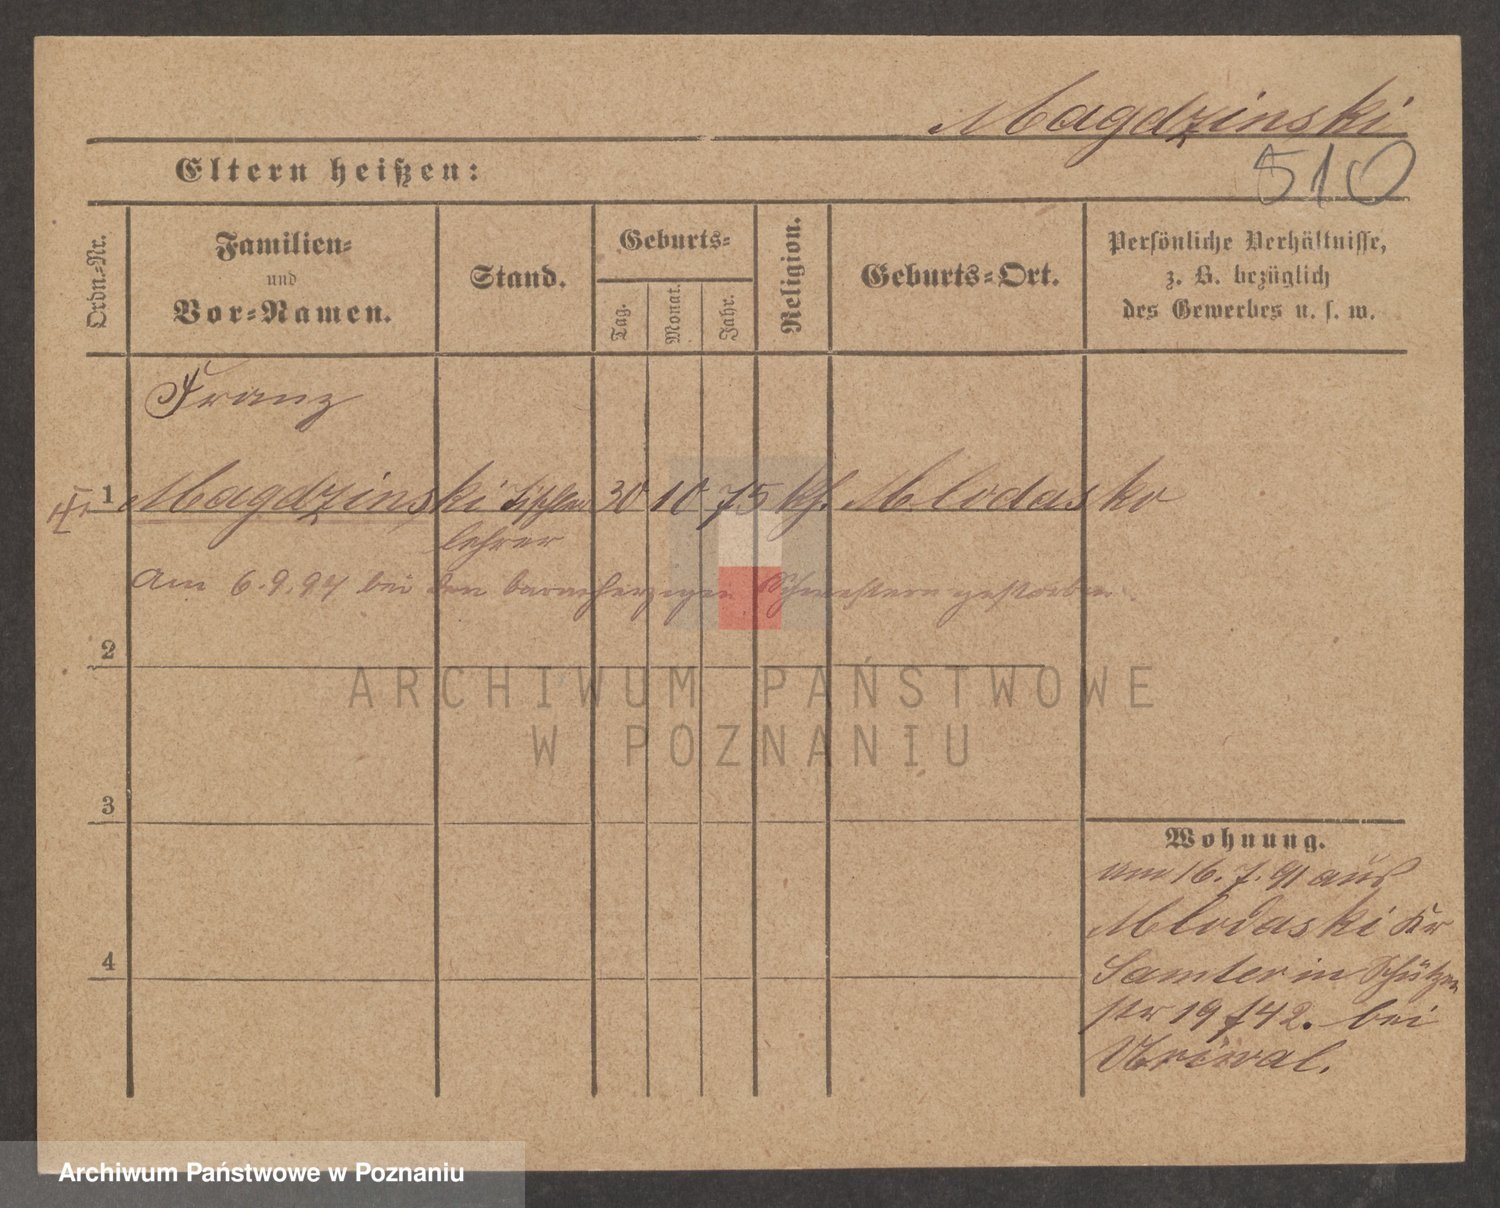 Magdzinski
510
Eltern heißen:
Ordn.-Nr.
Familien-
und
Vor-Namen.
Stand.
Geburts-
Tag.
Monat.
Jahr.
Religion.
Geburts-Ort.
Persönliche Verhältnisse,
z. B. bezüglich
des Gewerbes u. s. w.
Franz
1 Magdzinski Tischler 30 10 75 kth. Mlodasko
lehrer
Am 6.9.94 bei den barmherzigen Schwestern gestorben.
2
ARCHIWUM PAŃSTWOWE
W POZNANIU
3
Wohnung.
am 16.7.91 aus
Mlodaski Kr
Samter in Schützen
str 19 f42. bei
4
Archiwum Państwowe w Poznaniu